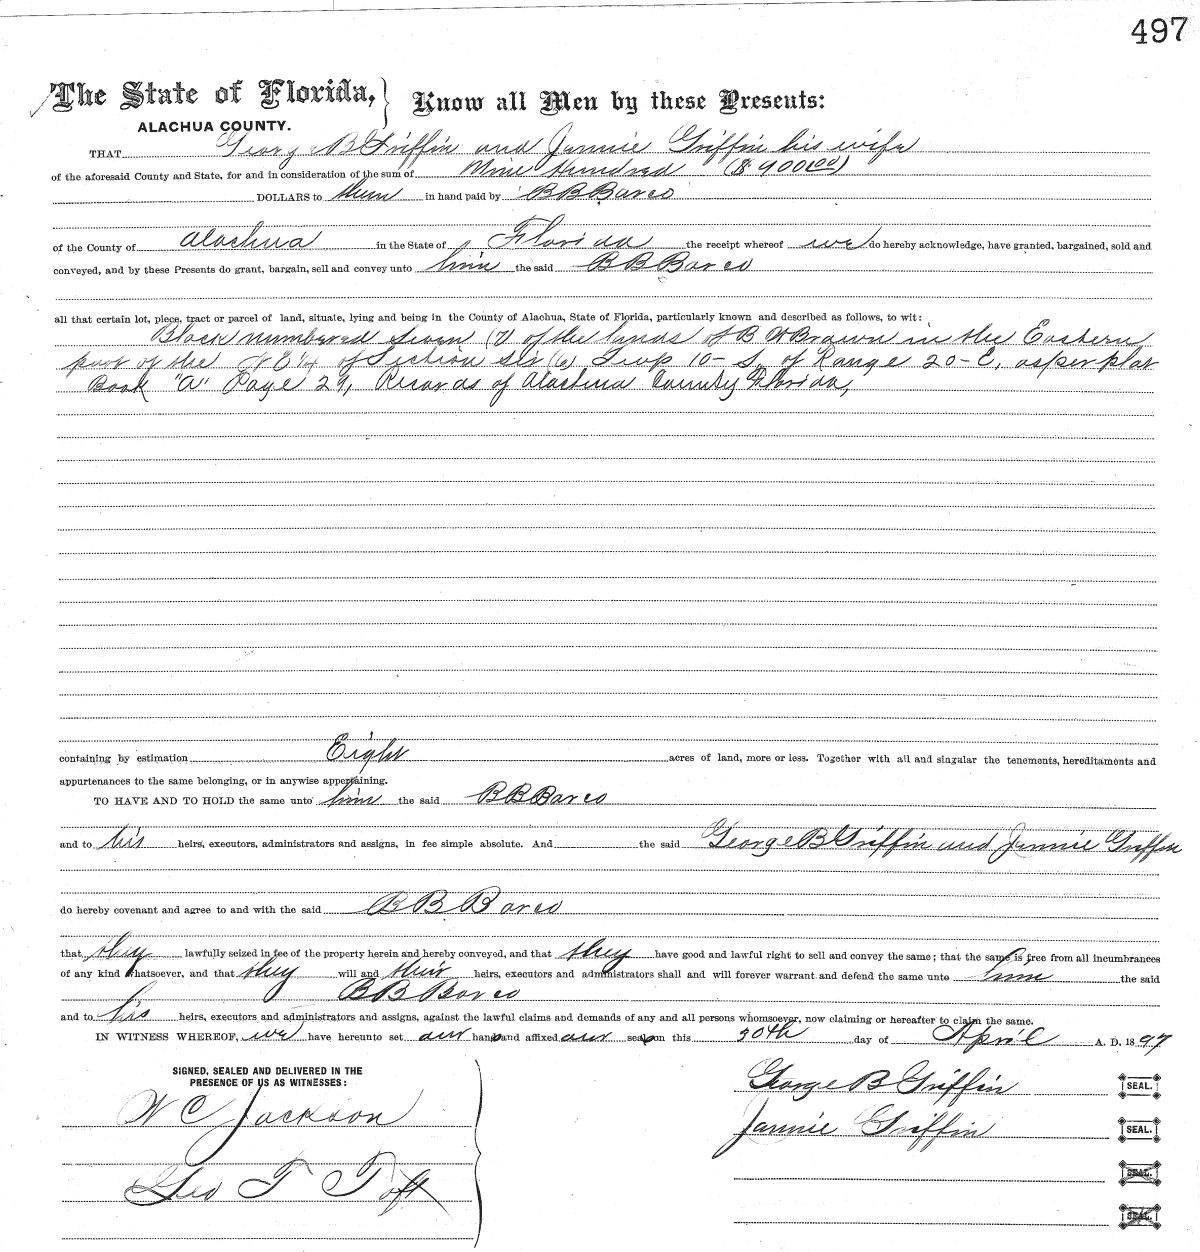 497
The State of Florida, } Know all Men by these Presents:
ALACHUA COUNTY.
THAT George B Griffin and Jannie Griffin his wife
of the aforesaid County and State, for and in consideration of the sum of Nine Hundred ($900 00)
DOLLARS to them in hand paid by B B Barco
of the County of Alachua in the State of Florida the receipt whereof we do hereby acknowledge, have granted, bargained, sold and
conveyed, and by these Presents do grant, bargain, sell and convey unto him the said B B Barco
all that certain lot, piece, tract or parcel of land, situate, lying and being in the County of Alachua, State of Florida, particularly known and described as follows, to wit:
Block numbered Seven (7) of the lands of B W Brown in the Eastern
part of the N E 1/4 of Section six (6) Twp 10-S, of Range 20-E, as per plat
Book "A" Page 29, Records of Alachua County Florida,
containing by estimation Eight acres of land, more or less. Together with all and singular the tenements, hereditaments and
appurtenances to the same belonging, or in anywise appertaining.
TO HAVE AND TO HOLD the same unto him the said B B Barco
and to his heirs, executors, administrators and assigns, in fee simple absolute. And the said George B Griffin and Jannie Griffin
do hereby covenant and agree to and with the said B B Barco
that they lawfully seized in fee of the property herein and hereby conveyed, and that they have good and lawful right to sell and convey the same; that the same is free from all incumbrances
of any kind whatsoever, and that they will and their heirs, executors and administrators shall and will forever warrant and defend the same unto him the said
B B Barco
and to his heirs, executors and administrators and assigns, against the lawful claims and demands of any and all persons whomsoever, now claiming or hereafter to claim the same.
IN WITNESS WHEREOF, we have hereunto set our hands and affixed our seals on this 30th day of April A. D. 1897
SIGNED, SEALED AND DELIVERED IN THE
PRESENCE OF US AS WITNESSES:
W C Jackson
Geo T Toft
George B Griffin SEAL.
Jannie Griffin SEAL.
SEAL.
SEAL.